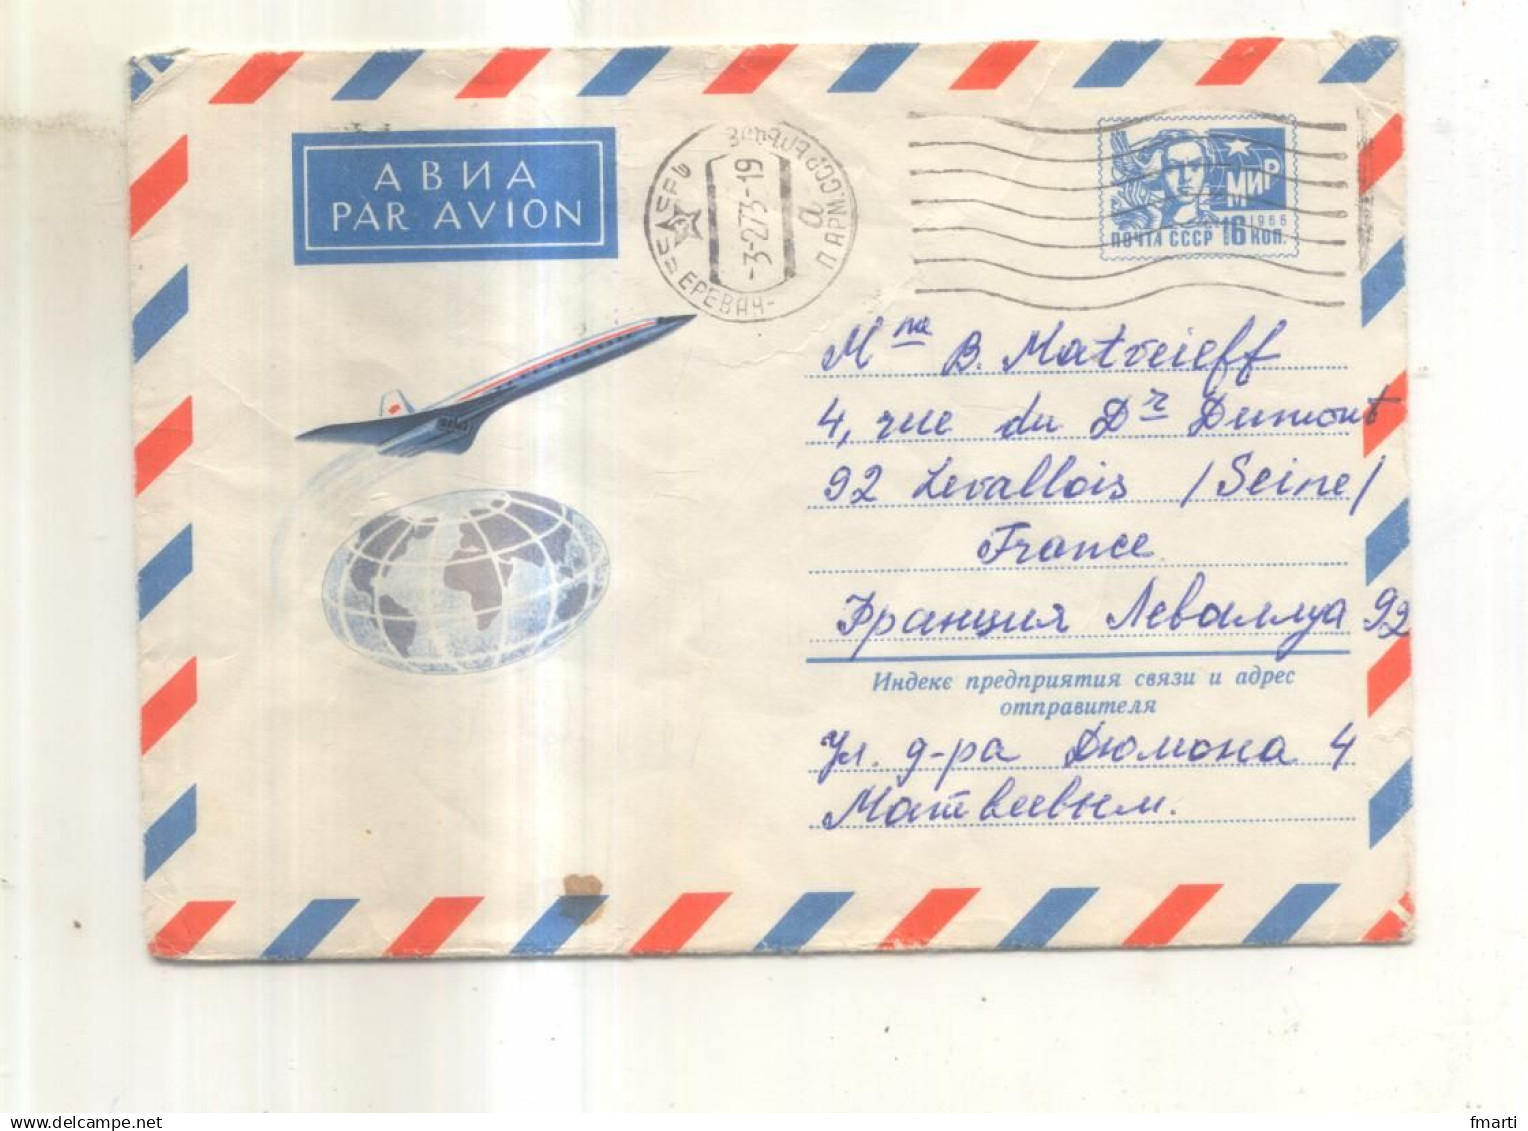 АВИА
PAR AVION
ЕРЕВАН-
П АРМ.ССР
а
-3-273-19
МИР
1966
ПОЧТА СССР 16 КОП.
Mme B. Matveieff
4, rue du Dr Dumont
92 Levallois /Seine/
France
Франция Леваллуа 92
Индекс предприятия связи и адрес
отправителя
Ул. д-ра Дюмона 4
Матвеевым.
fmarti